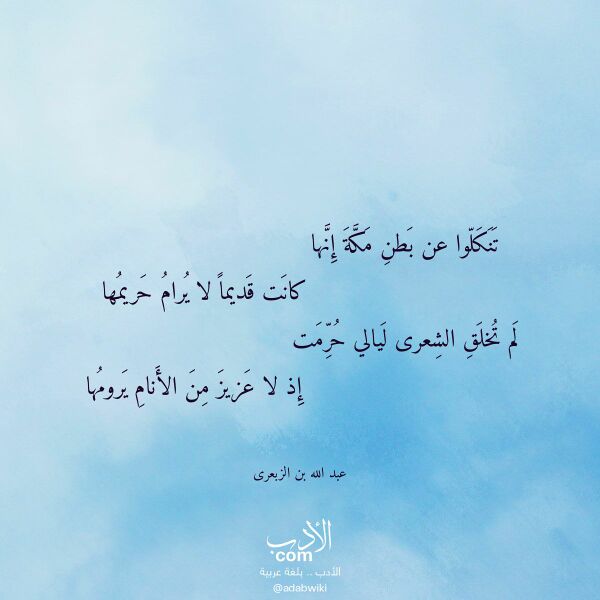 تَنَكَلّوا عن بَطنِ مَكَّةَ إِنَّها
كانَت قَديماً لا يُرامُ حَريمُها
لَم تُخلَقِ الشِعرى لَيالي حُرِّمَت
إِذ لا عَزيزَ مِنَ الأَنامِ يَرومُها
عبد الله بن الزبعرى
الأدب
com
الأدب .. بلغة عربية
@adabwiki